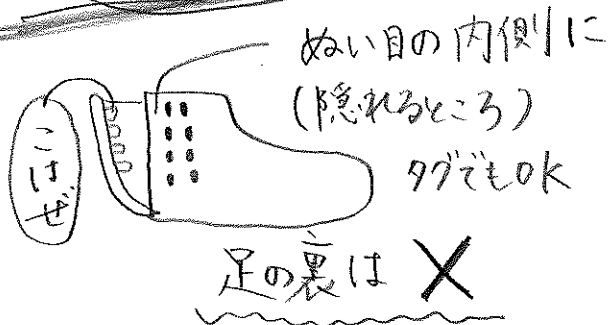 ぬい目の内側に
(隠れるところ)
タグでもOK
こはぜ
足の裏は ×